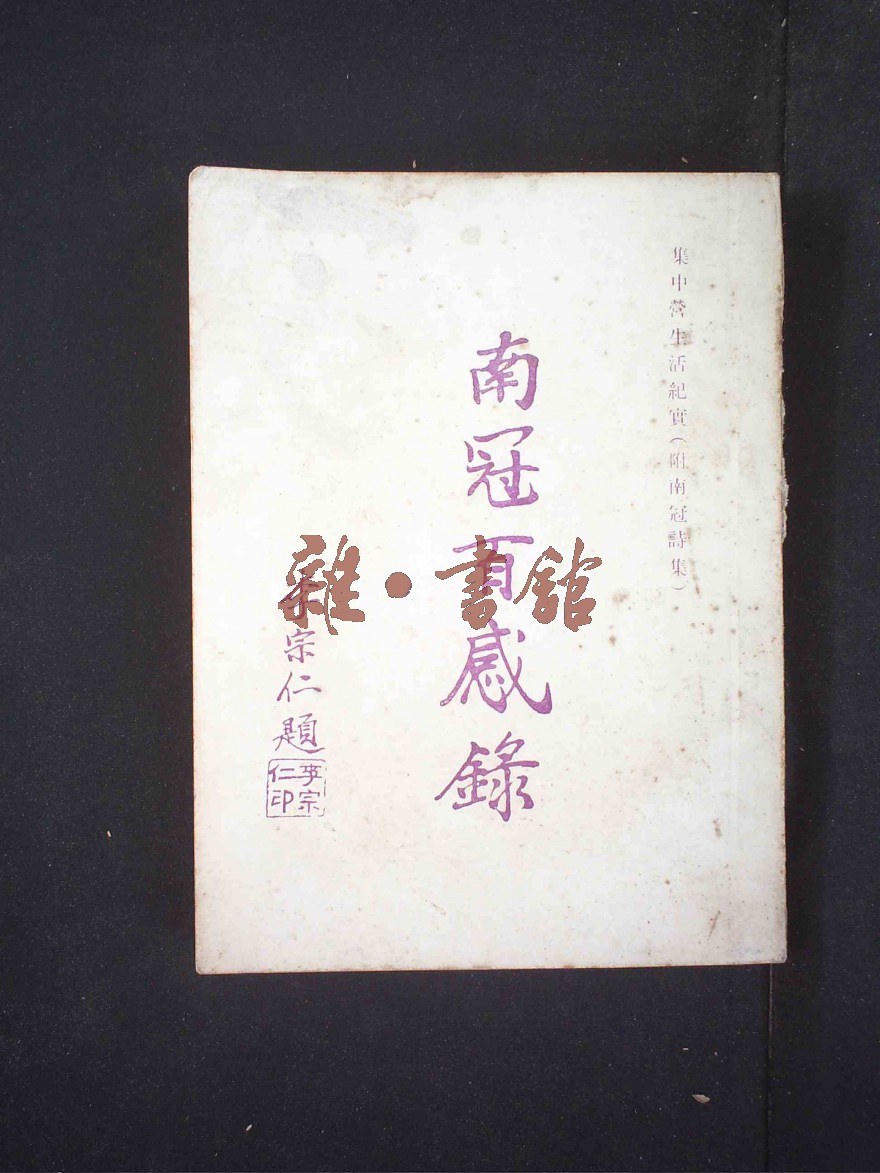 集中營生活紀實(附南冠詩集)
南冠百感錄
李宗仁題
李宗仁印
雜·書館